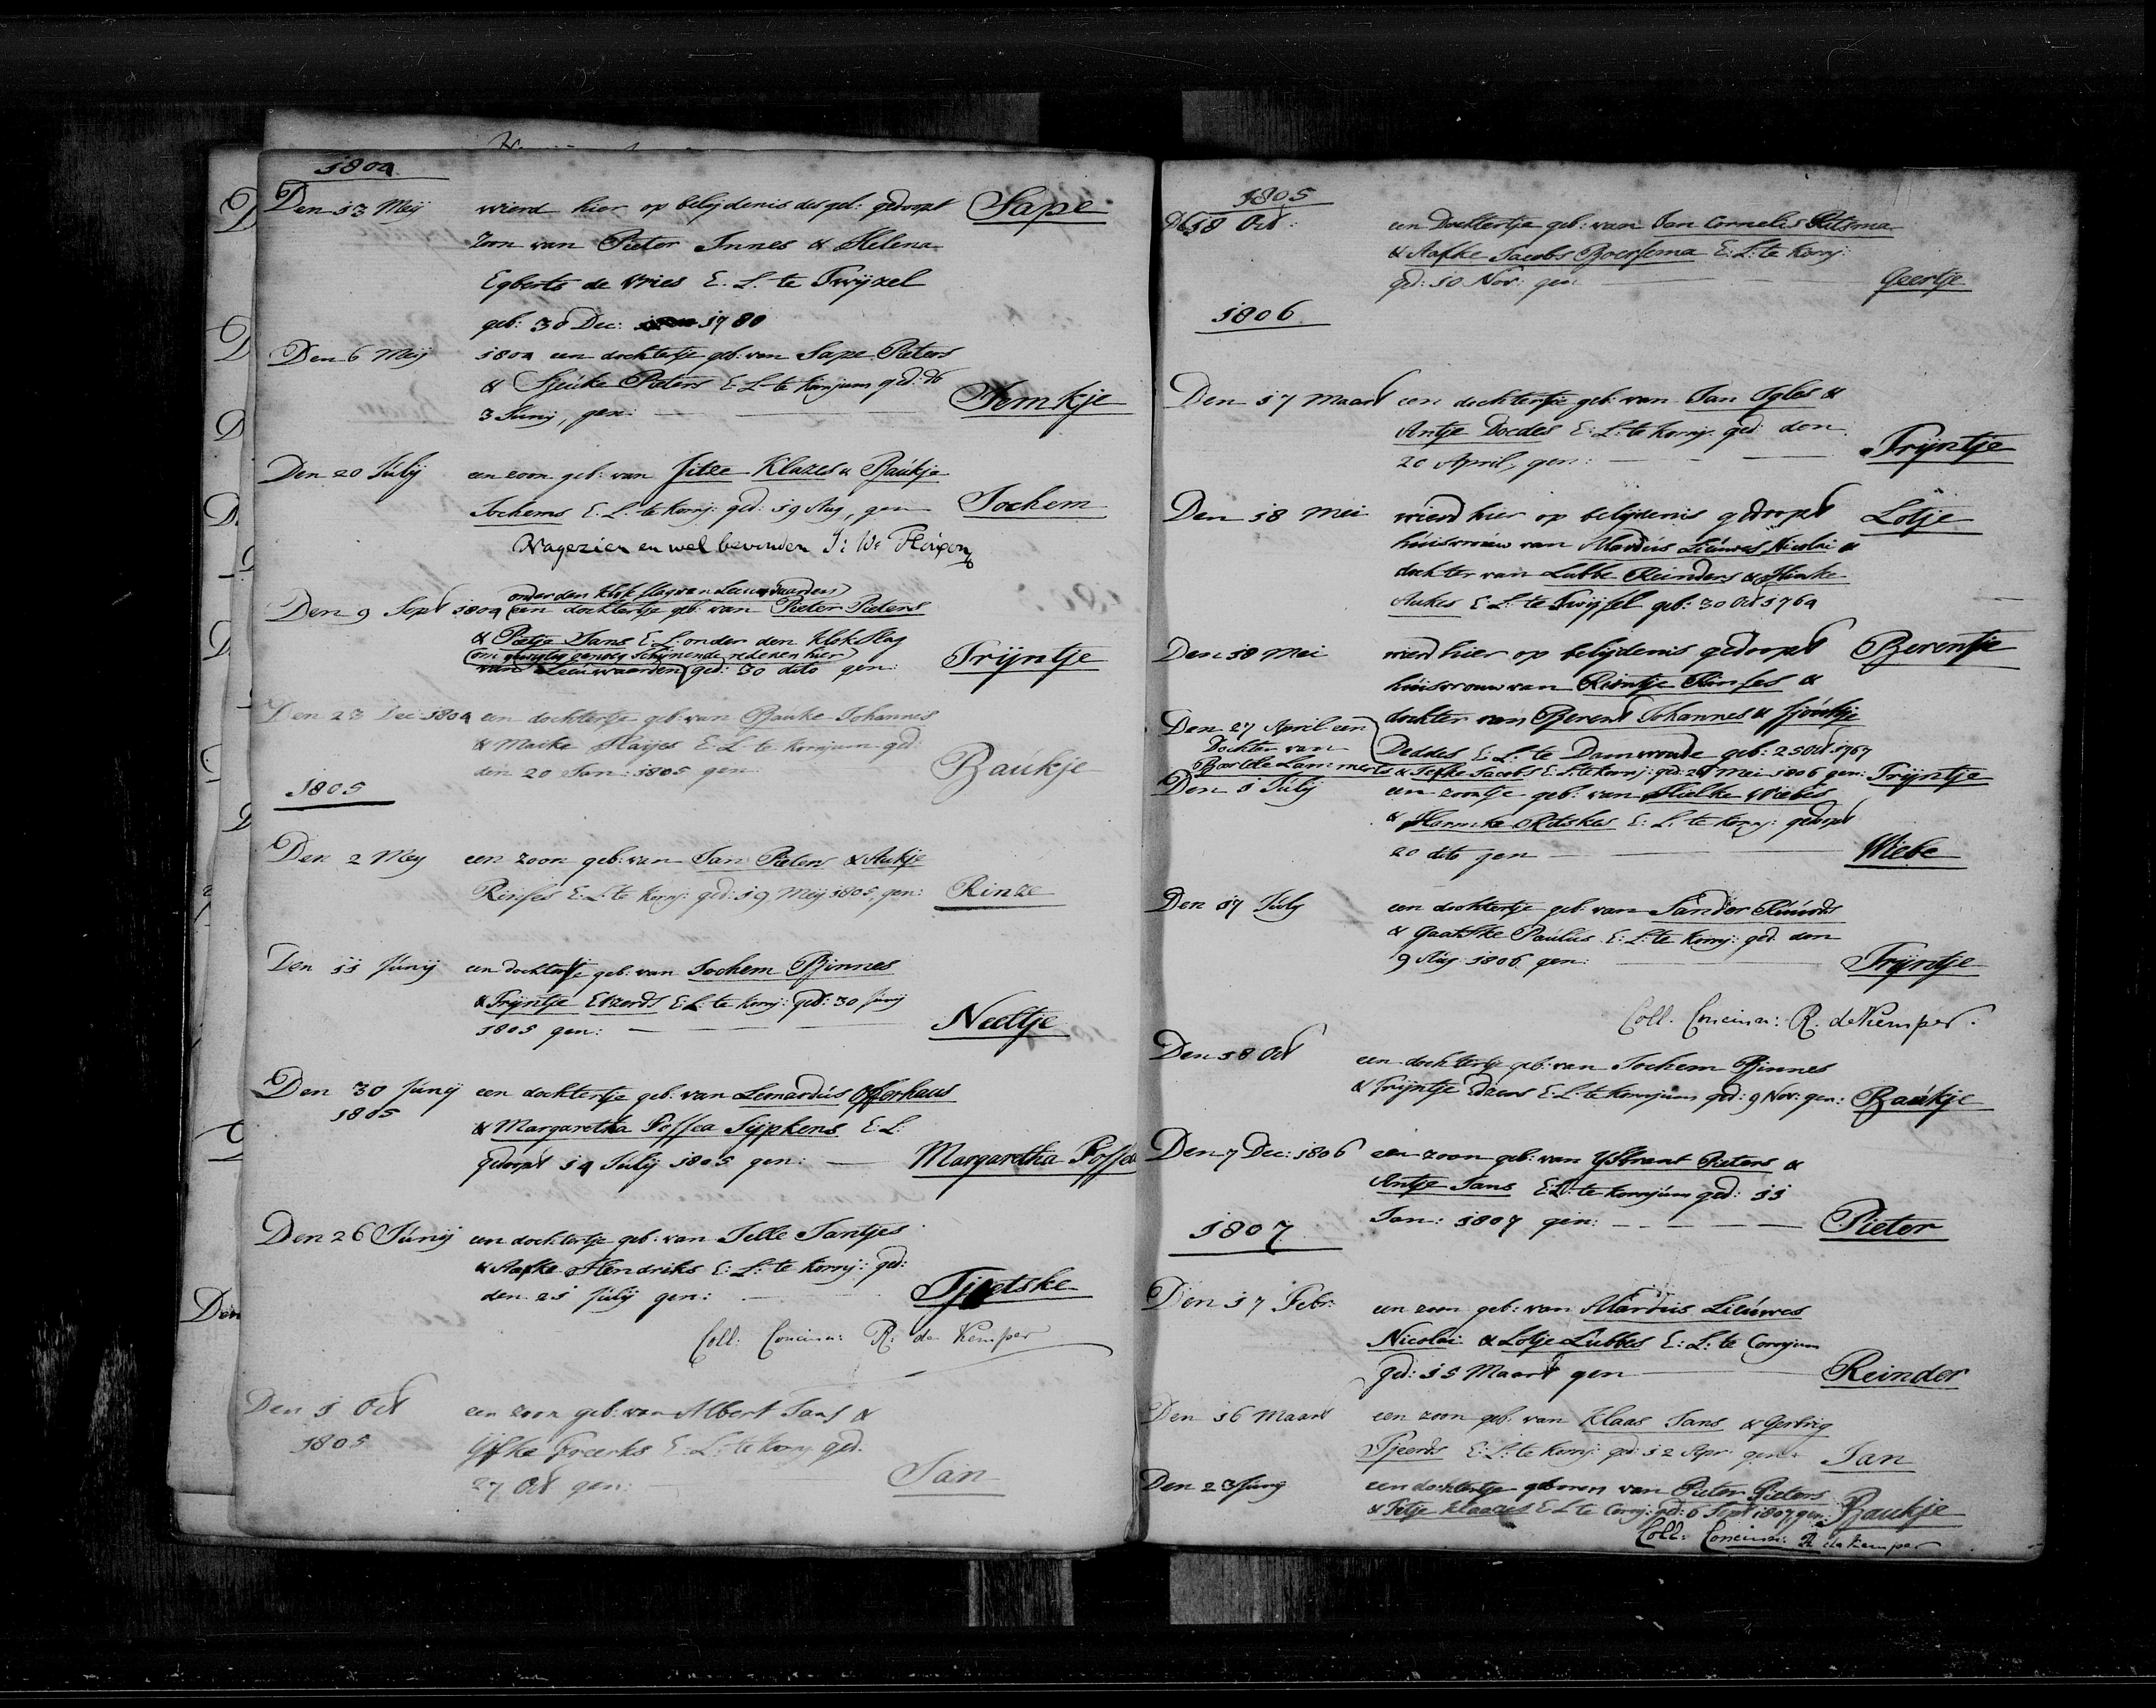 1804
Den 13 Meij wierd hier op belijdenis des gel: gedoopt Sape
Zoon van Pieter Innes & Helena
Egberts de Vries E. L. te Twijzel
geb: 30 Dec: 1780
Den 6 Meij 1804 een dochtertje geb: van Sape Pieters
& Sjeuke Pieters E L te Kornjum ged: d
3 Junij, gen: Iemkje
Den 20 Julij een zoon geb: van Jitze Klazes & Baukje
Jochems E. L. te Kornj: ged: 19 Aug, gen Jochem
Nagezien en wel bevonden J: W:
onder den klokslag van Leeuwaarden
Den 9 Sept 1804 een dochtertje geb: van Pieter Pieters
& Pietje Jans E. L. onder den klokslag
om gewigtig genoeg schijnende redenen hier
van Leeuwaarden ged: 30 dito gen: Trijntje
Den 23 Dec 1804 een dochtertje geb: van Bauke Johannes
& Maike Haijes E. L. te Kornjum ged:
den 20 Jan: 1805 gen: Baukje
1805
Den 2 Mey een zoon geb: van Jan Pieters & Aukje
Rinses E: L: te Kornj: ged: 19 Meij 1805, gen: Rinze
Den 11 Junij een dochtertje geb: van Jochem Binnes
& Trijntje Edzerds E: L: te Kornj: ged: 30 Junij
1805 gen: Neeltje
Den 30 Junij een dochtertje geb: van Leonardus Offerhaus
1805 & Margaretha Fossea Sijpkens E: L:
gedoopt 14 Julij 1805 gen: Margaretha Fossea
Den 26 Junij een dochtertje geb: van Jelle Jantjes
& Aafke Hendriks E: L: te Kornj: ged:
den 21 Julij gen: Tjietske
Coll: Concinn: R: de Kemper
Den 1 Oct een zoon geb: van Albert Jans &
1805 Ijfke Freerks E: L: te Kornj: ged:
27 Oct gen: Jan
1805
Den 18 Oct: een Dochtertje geb: van Jan Cornelis Ritsma
& Aafke Jacobs Boersema E: L: te Kornj:
ged: 10 Nov: gen: Geertje
1806
Den 17 Maart een dochtertje geb: van Jan Igles &
Antje Doedes E: L: te Kornj: ged: den
20 April, gen: Trijntje
Den 18 Mei wierd hier op belijdenis gedoopt Lötje
huisvrouw van Mardus Lieuwes Nicolai &
dochter van Lubbe Reinders & Hinke
Aukes E: L: te Twijsel geb: 30 Oct 1764
Den 18 Mei wierd hier op belijdenis gedoopt Berentje
huisvrouw van Rientje Rinses &
dochter van Berent Johannes & Sjoukje
Deddes E: L: te Damwoude geb: 25 Oct 1767
Den 27 April een
Dochter van
Boelke Lammerts & Jefke Jacobs E: L: te Kornj: ged: 26 Mei 1806 gen: Trijntje
Den 1 Julij een zoontje geb: van Hielke Wiebes
& Harmke Ritskes E: L: te Kornj: gedoopt
20 dito gen Wiebe
Den 17 July een dochtertje geb: van Sander Ruurds
& Gaatske Paulus E: L: te Kornj: ged: den
9 Aug 1806 gen: Trijntje
Coll. Concinn: R. de Kemper.
Den 18 Oct een dochtertje geb: van Jochem Binnes
& Trijntje Edzers E: L: te Kornjum ged: 9 Nov: gen: Baukje
Den 7 Dec: 1806 een zoon geb: van Ysbrant Pieters &
Antje Jans E: L: te Kornjum ged: 11
Jan: 1807 gen: Pieter
1807
Den 17 Febr: een zoon geb: van Mardus Lieuwes
Nicolai & Lotje Lubbes E: L: te Cornjum
ged: 15 Maart gen Reinder
Den 16 Maart een zoon geb: van Klaas Jans & Gerbrig
Sjeerds E: L: te Kornj: ged: 12 Apr: gen: Jan
Den 23 Junij een dochtertje geboren van Pieter Pieters
& Fetje Klaases E L te Cornj: ged: 6 Sept 1807, gen: Baukje
Coll: Concinn: R de Kemper